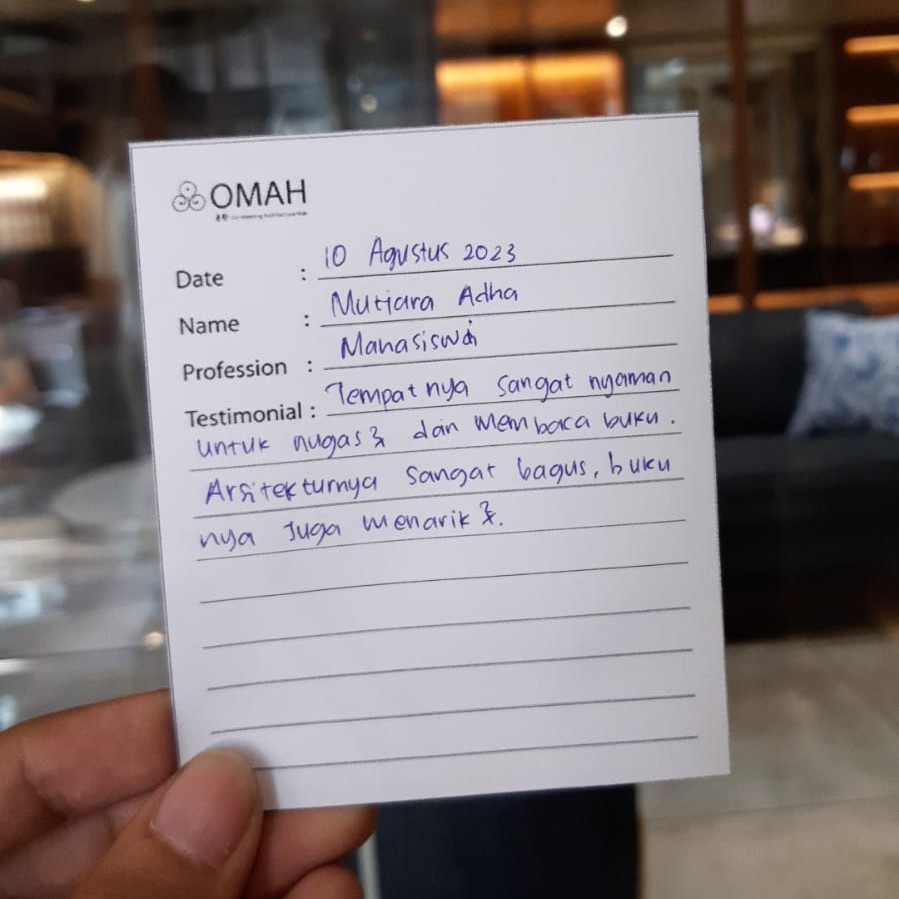 OMAH
Date : 10 Agustus 2023
Name : Mutiara Adha
Profession : Mahasiswi
Testimonial : Tempatnya sangat nyaman
untuk nugas2 dan membaca buku.
Arsitekturnya sangat bagus, buku
nya juga menarik2.